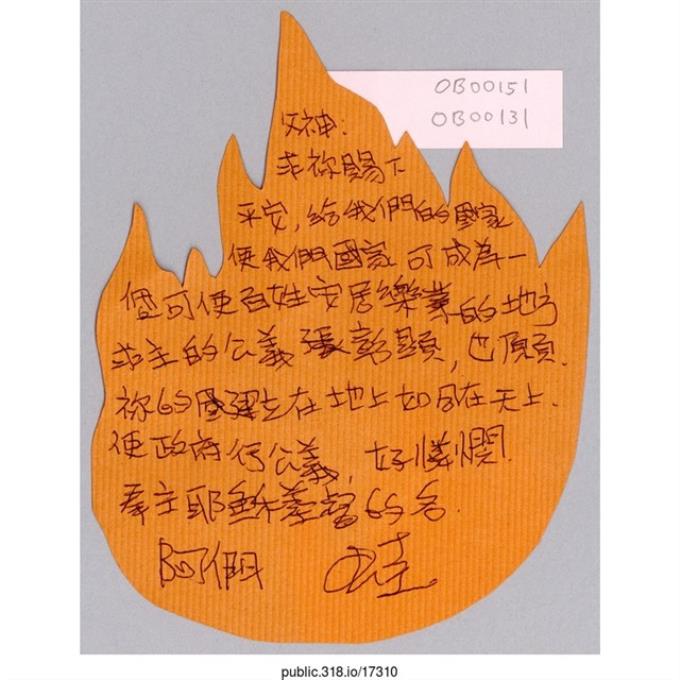 OB00151
OB00131
父神:
求祢賜下
平安,給我們的國家
使我們國家可成為一
個可使百姓安居樂業的地方
求主的公義彰顯,也願
祢的國建立在地上如同在天上.
使政府行公義,好憐憫.
奉主耶穌基督的名.
阿們
public.318.io/17310